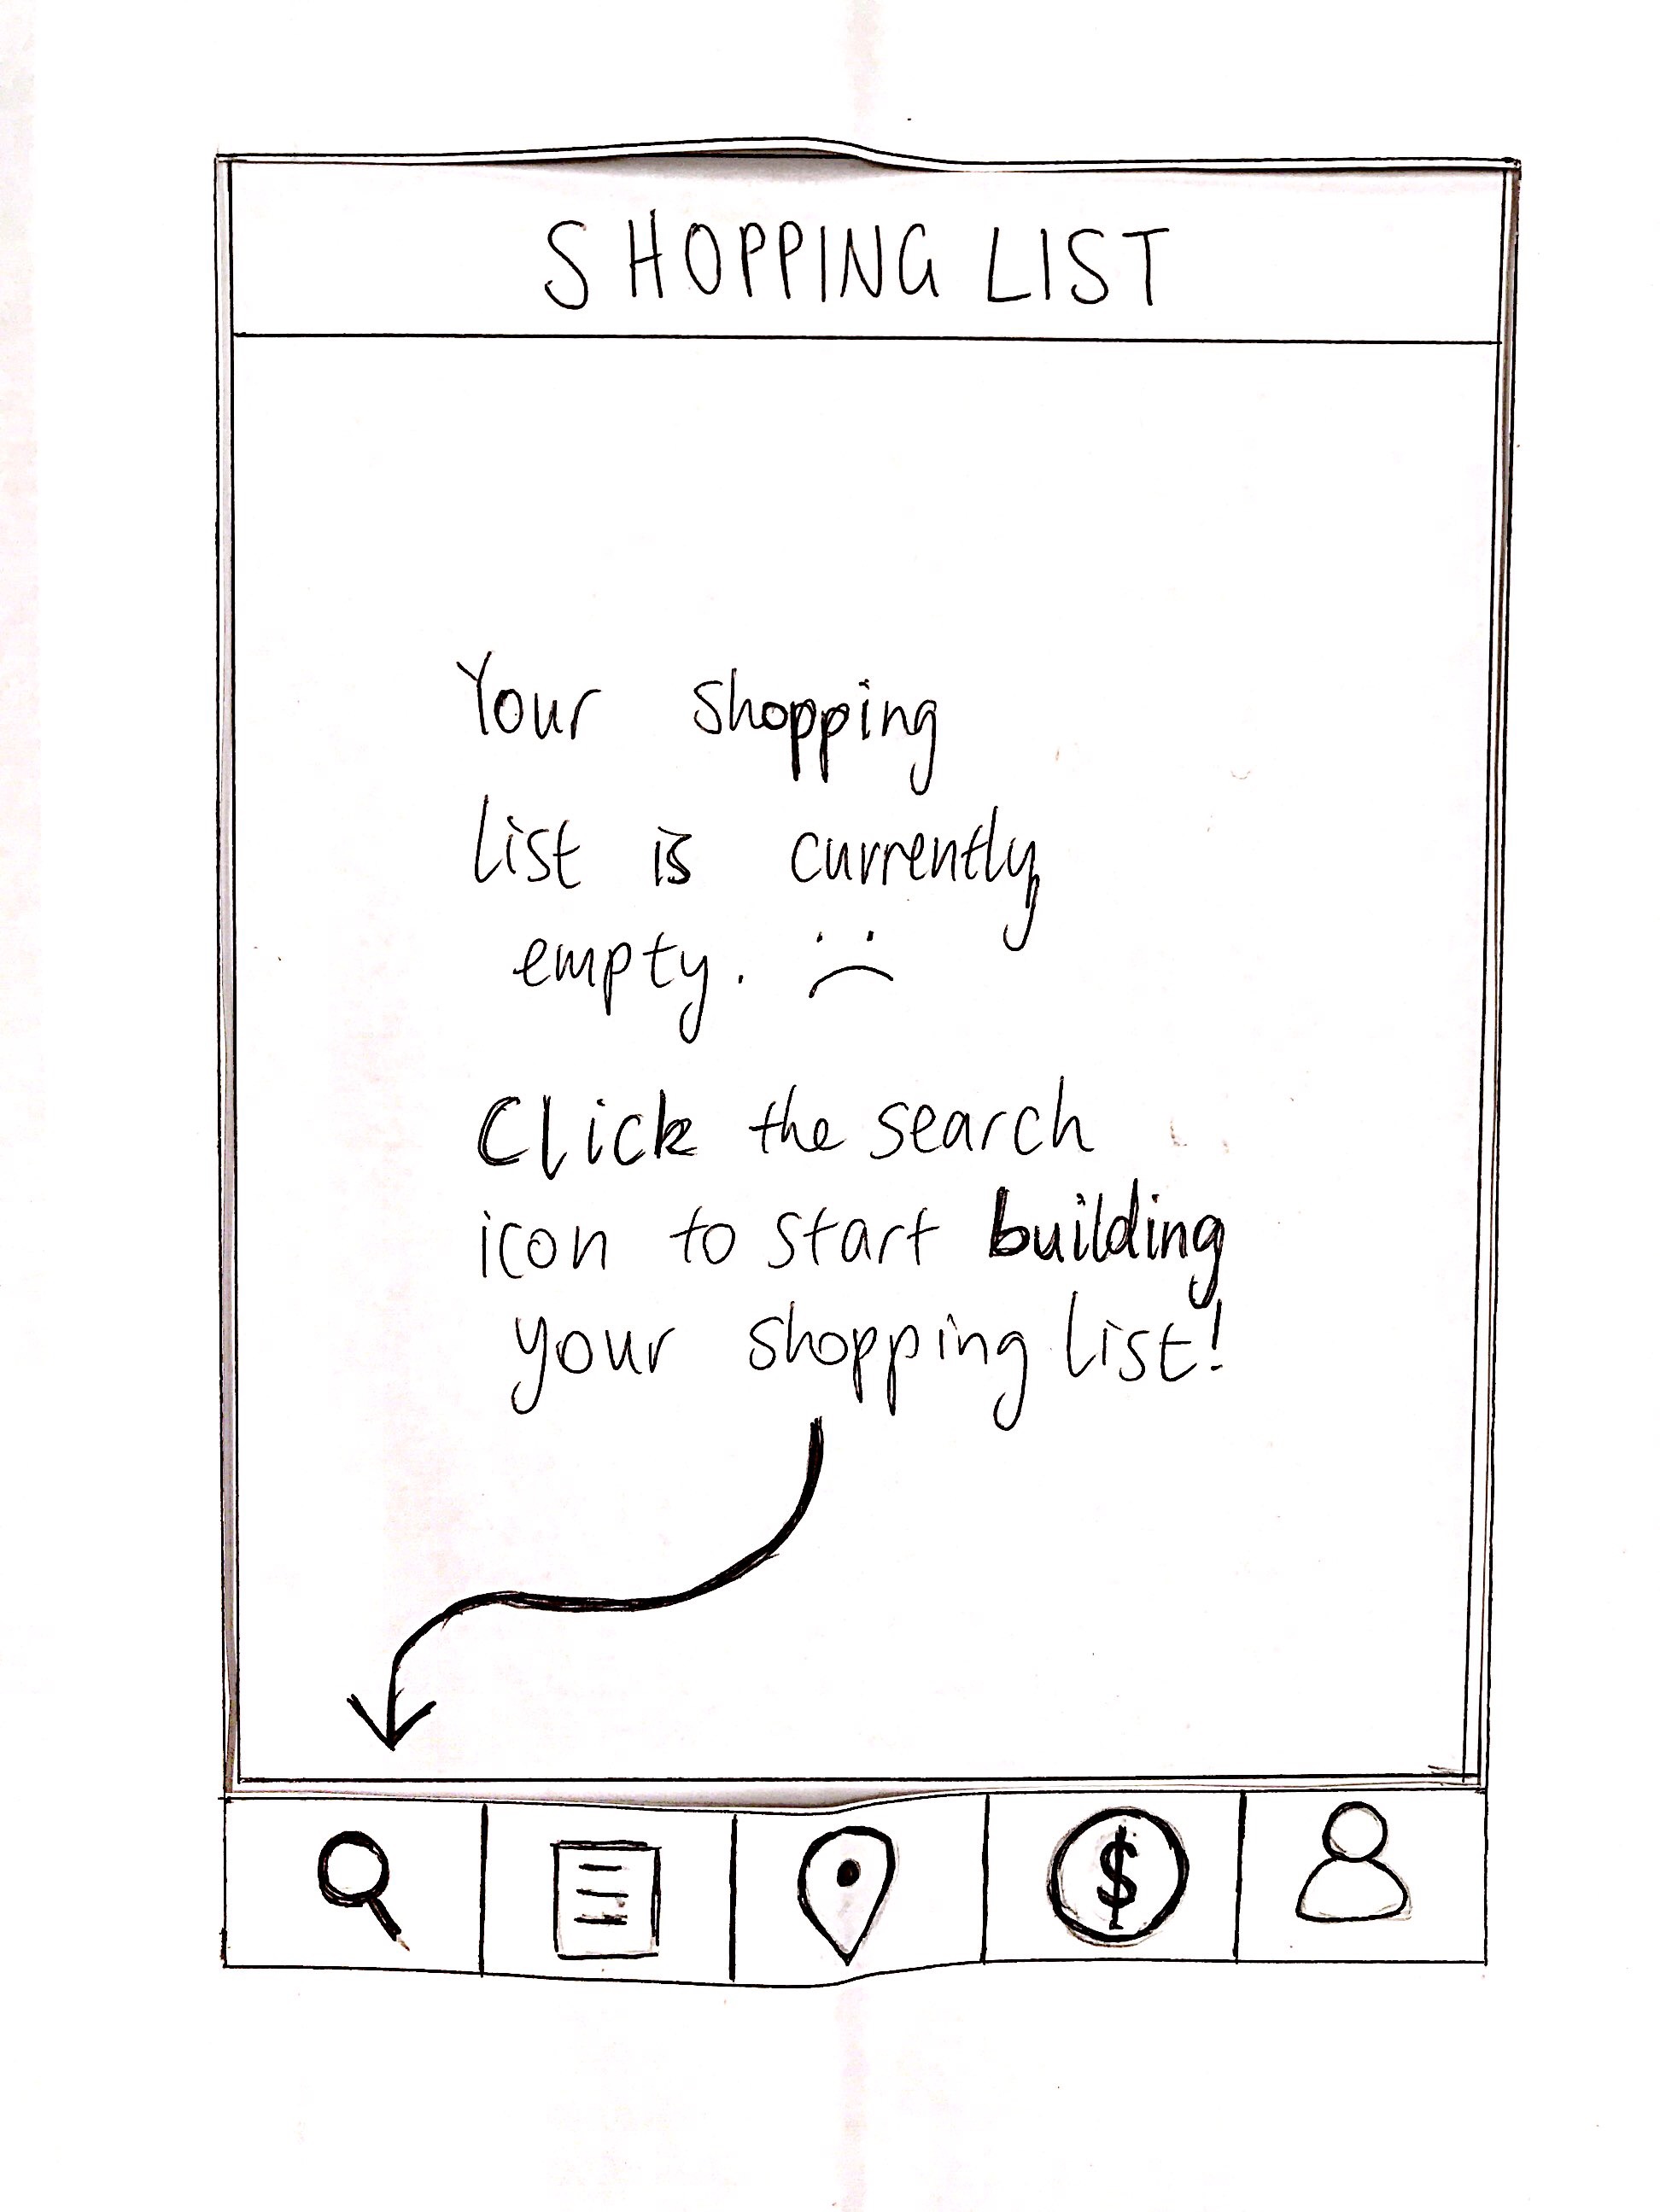 SHOPPING LIST
Your shopping
list is currently
empty. :(
Click the search
icon to start building
your shopping list!
$